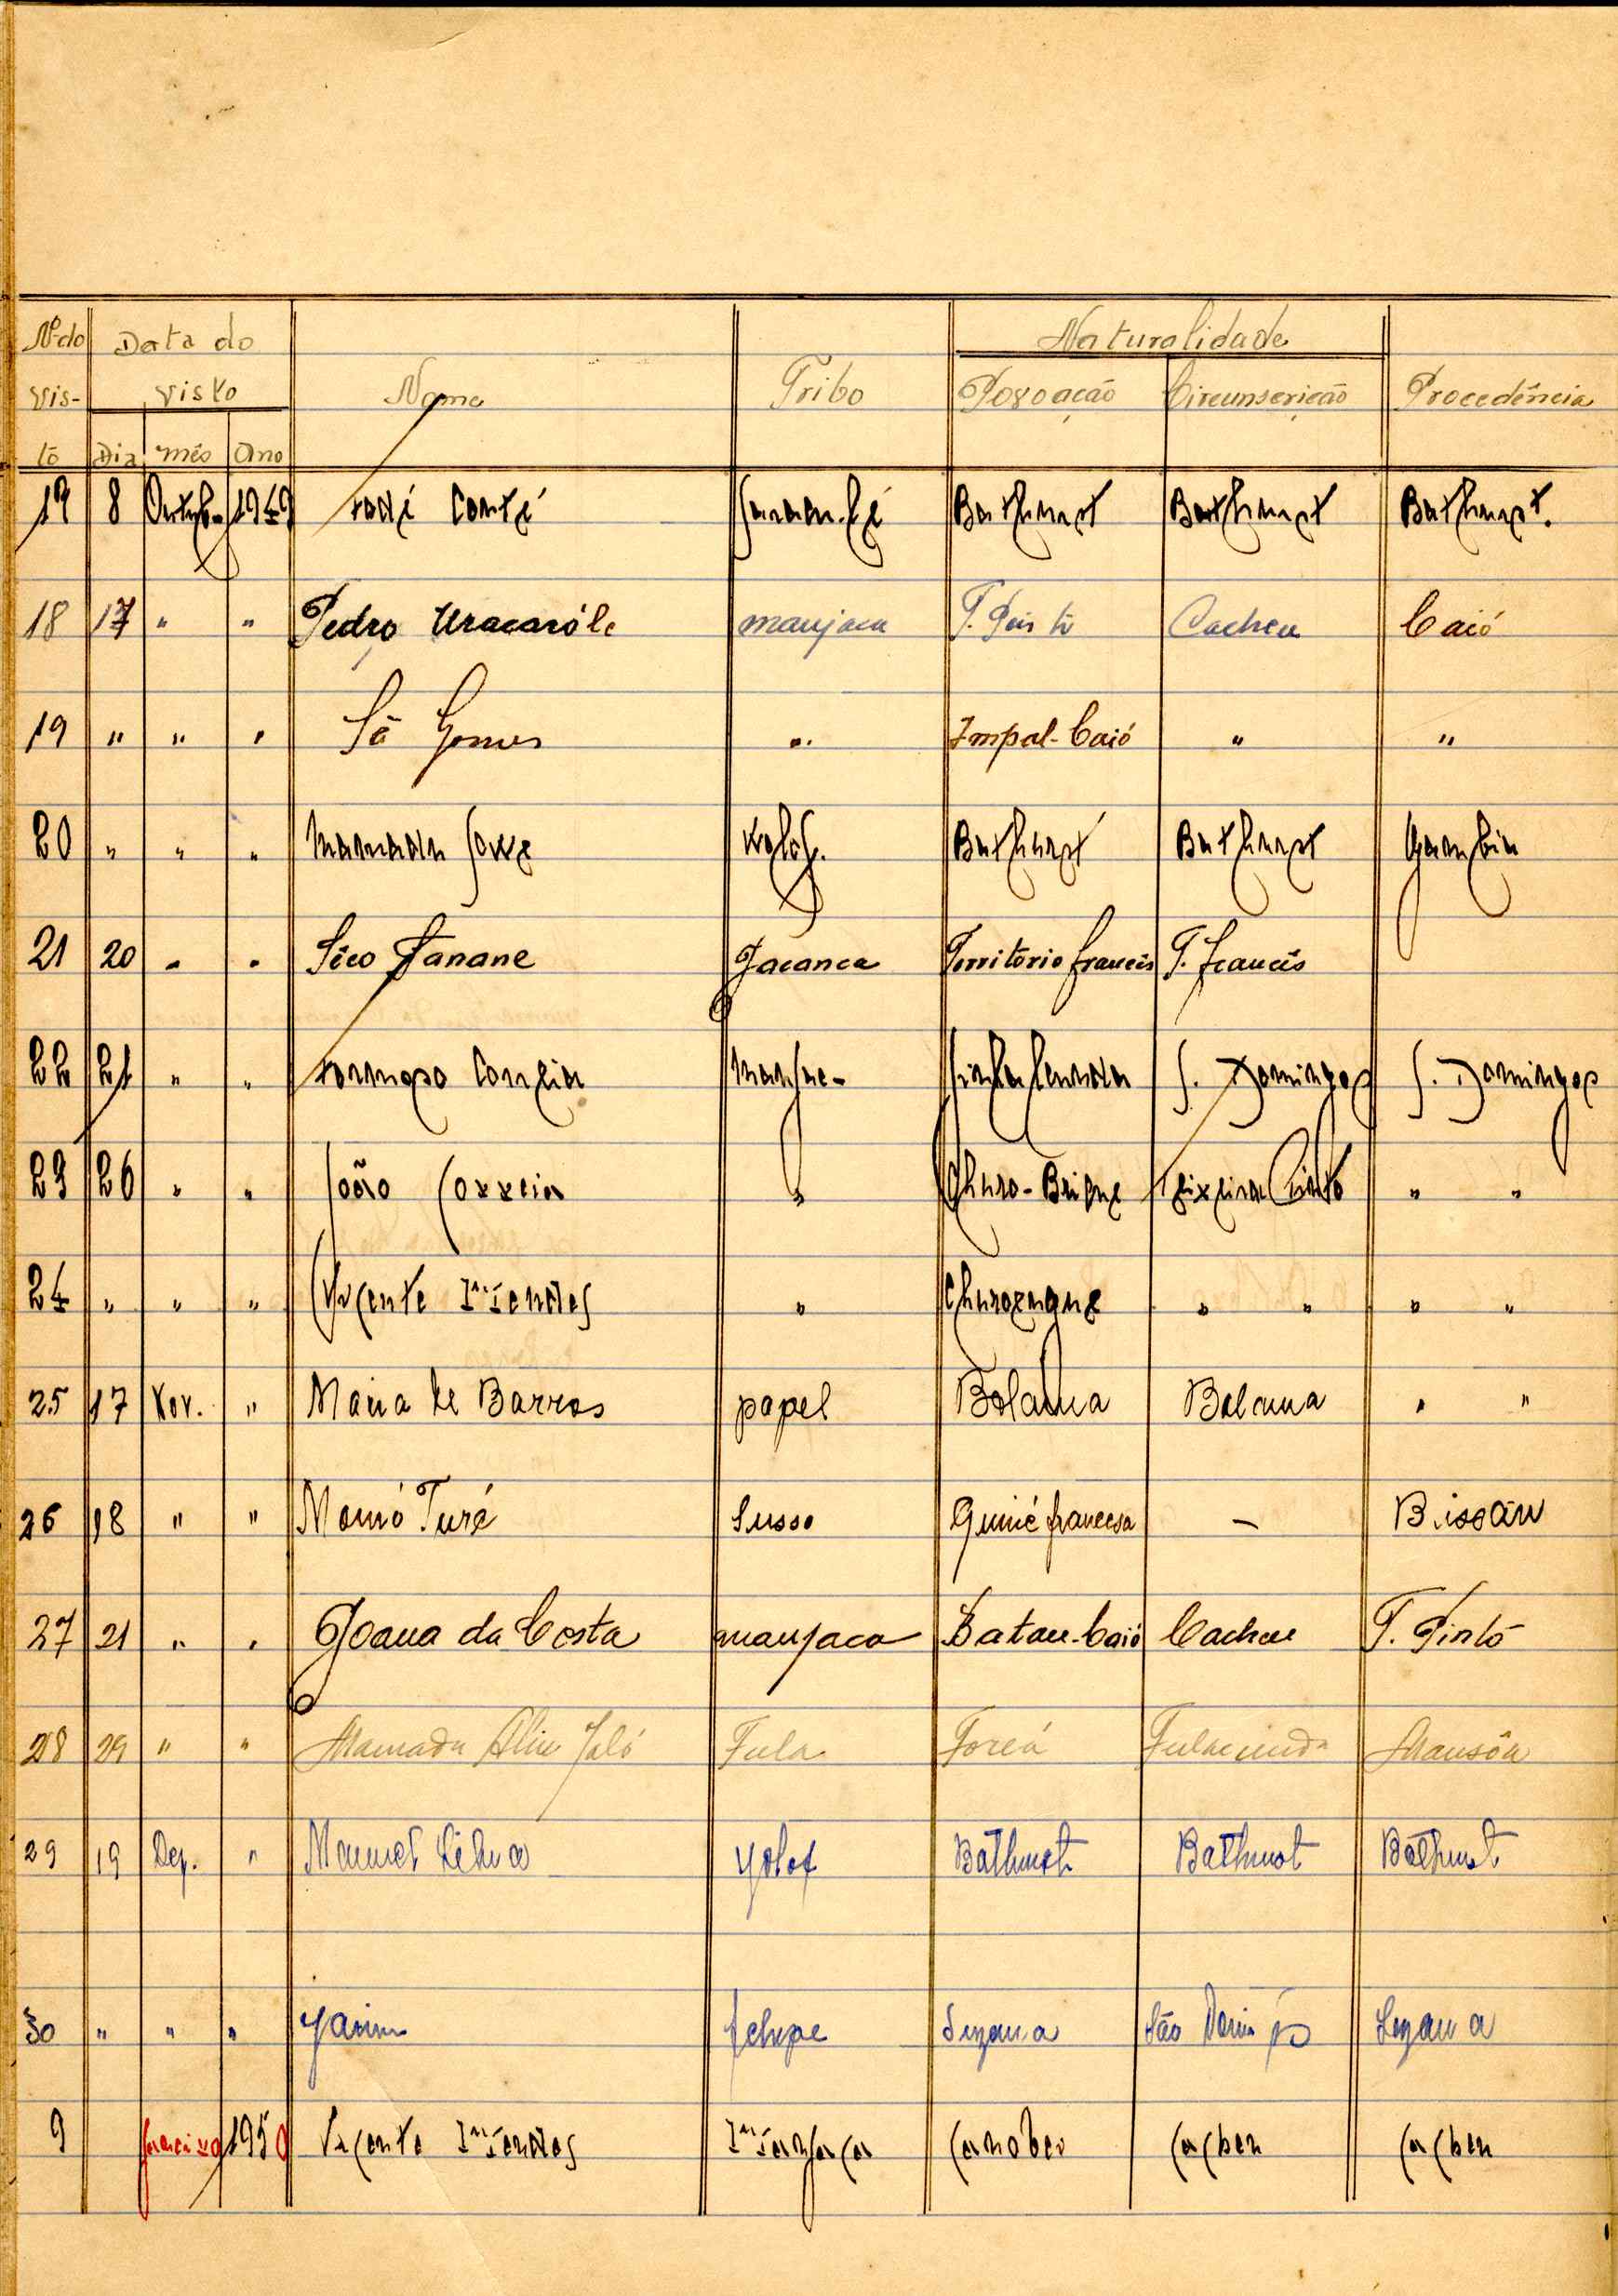 Nº do Data do Naturalidade
vis- visto Nome Tribo Povoação Circunscrição Procedência
to Dia mês Ano
8 Outub. 1949 Conté Bathurst Bathurst Bathurst.
18 17 " " Pedro manjaca T. Pinto Cacheu Caió
19 " " " Sá Gomes " Impal-Caió " "
20 " " " Mamadu Bathurst Bathurst Gambia
21 20 " " Sêco Fanane Jacanca Território francês T. francês
22 21 " " Correia S. Domingos S. Domingos
23 26 " " João Correia " Churo-Brique Teixeira Pinto " "
24 " " " Vicente Mendes " " " " "
25 17 Nov. " Maria de Barros papel Bolama Bolama " "
26 18 " " Momó Turé Susso Guiné francesa — Bissau
27 21 " " Joana da Costa manjaca Batau-Caió Cacheu T. Pinto
28 29 " " Mamadu Aliu Jaló Fula Foreá Fulacunda Mansôa
29 19 Dez. " Manuel Yolof Bathurst Bathurst Bathurst
30 " " " felupe Suzana São Domingos Suzana
9 Janeiro 1950 Vicente Mendes Manjaca Canobeo Cacheu Cacheu